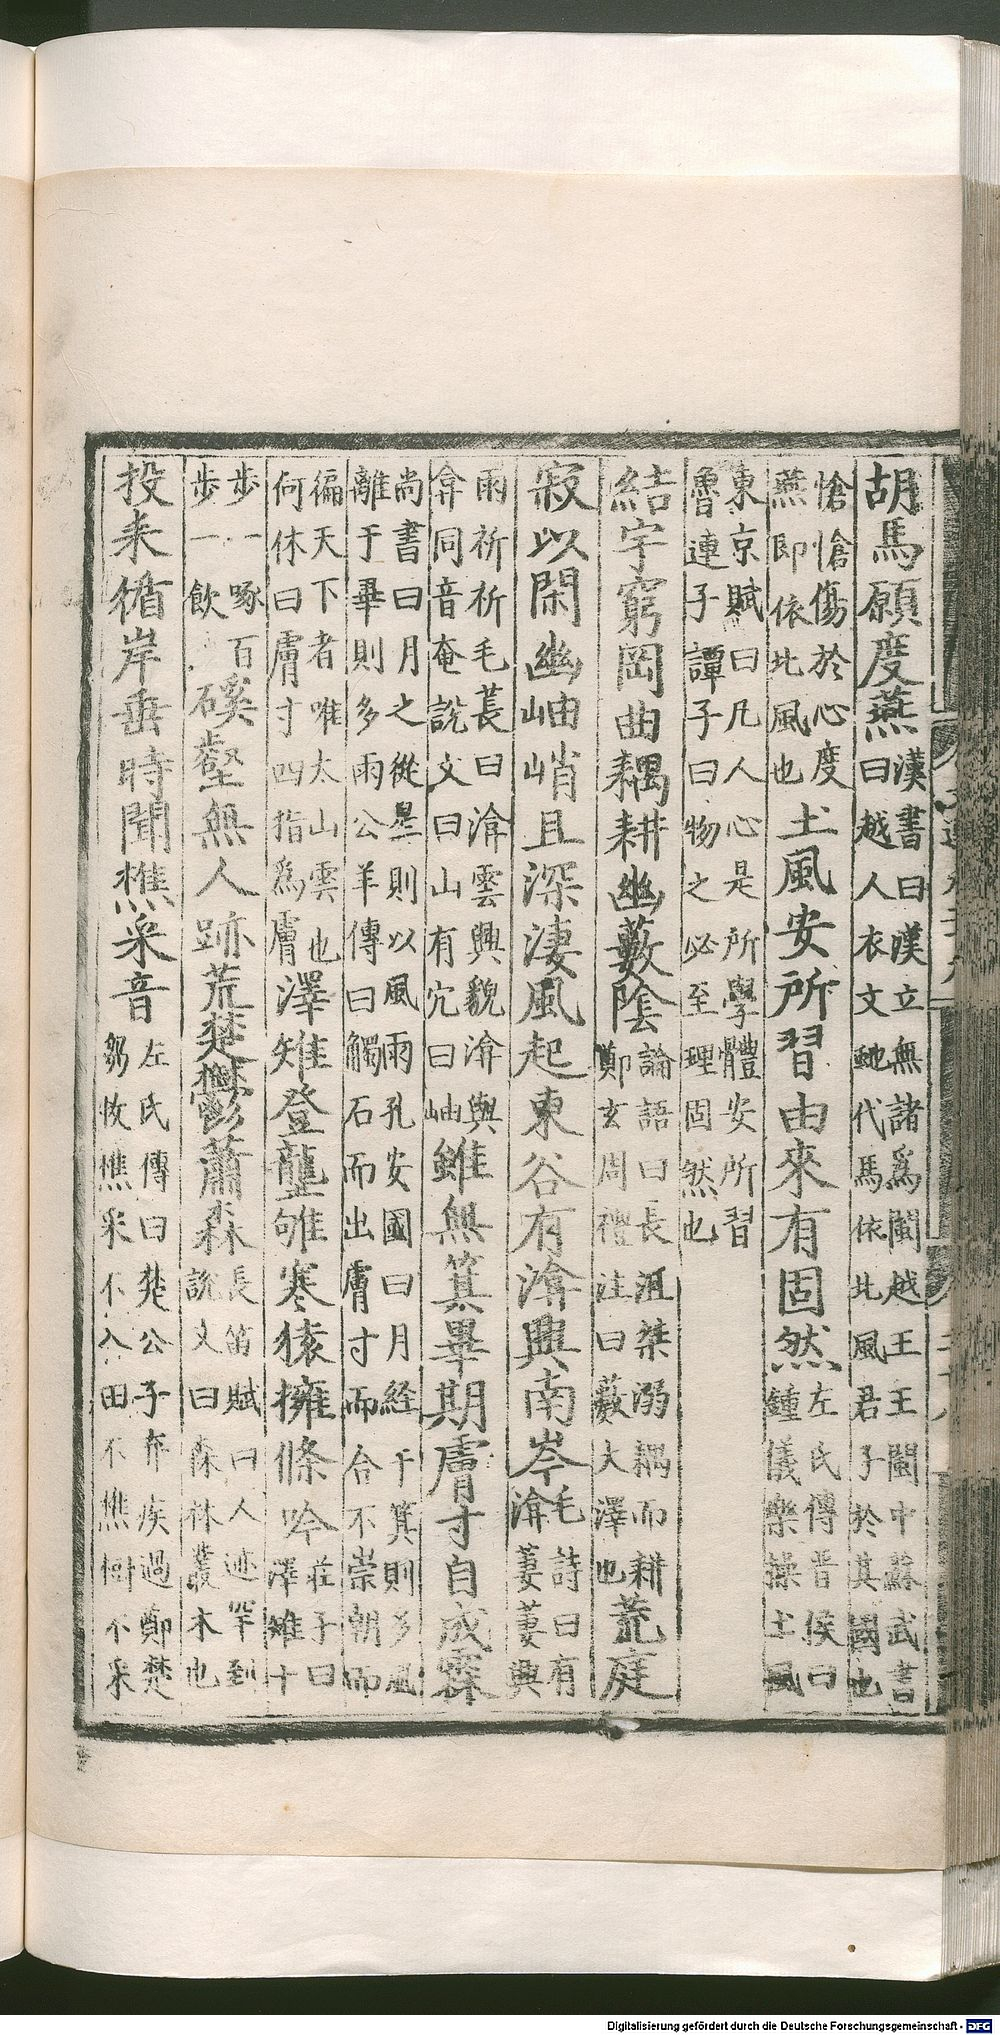 胡馬願度燕漢書曰漢立無諸為閩越王王閩中蘇武書曰越人衣文虵代馬依北風君子於其國也
愴愴傷於心度燕即依北風也土風安所習由來有固然左氏傳晉侯曰鍾儀樂操土風
東京賦曰凡人心是所學體安所習魯連子譚子曰物之必至理固然也
結宇窮岡曲耦耕幽藪陰論語曰長沮桀溺耦而耕鄭玄周禮注曰藪大澤也荒庭
寂以閑幽岫峭且深淒風起東谷有渰興南岑毛詩曰有渰萋萋興
雨祈祈毛萇曰渰雲興貌渰與弇同音奄說文曰山有穴曰岫雖無箕畢期膚寸自成霖
尚書曰月之從星則以風雨孔安國曰月経于箕則多風離于畢則多雨公羊傳曰觸石而出膚寸而合不崇朝而
徧天下者唯太山雲也何休曰膚寸四指為膚澤雉登壟雊寒猿擁條吟莊子曰澤雉十
步一啄百步一飲磎壑無人跡荒楚鬱蕭森長笛賦曰人迹罕到說文曰森林叢木也
投耒循岸垂時聞樵采音左氏傳曰楚公子弃疾過鄭楚芻牧樵采不入田不樵樹不采
Digitalisierung gefördert durch die Deutsche Forschungsgemeinschaft - DFG